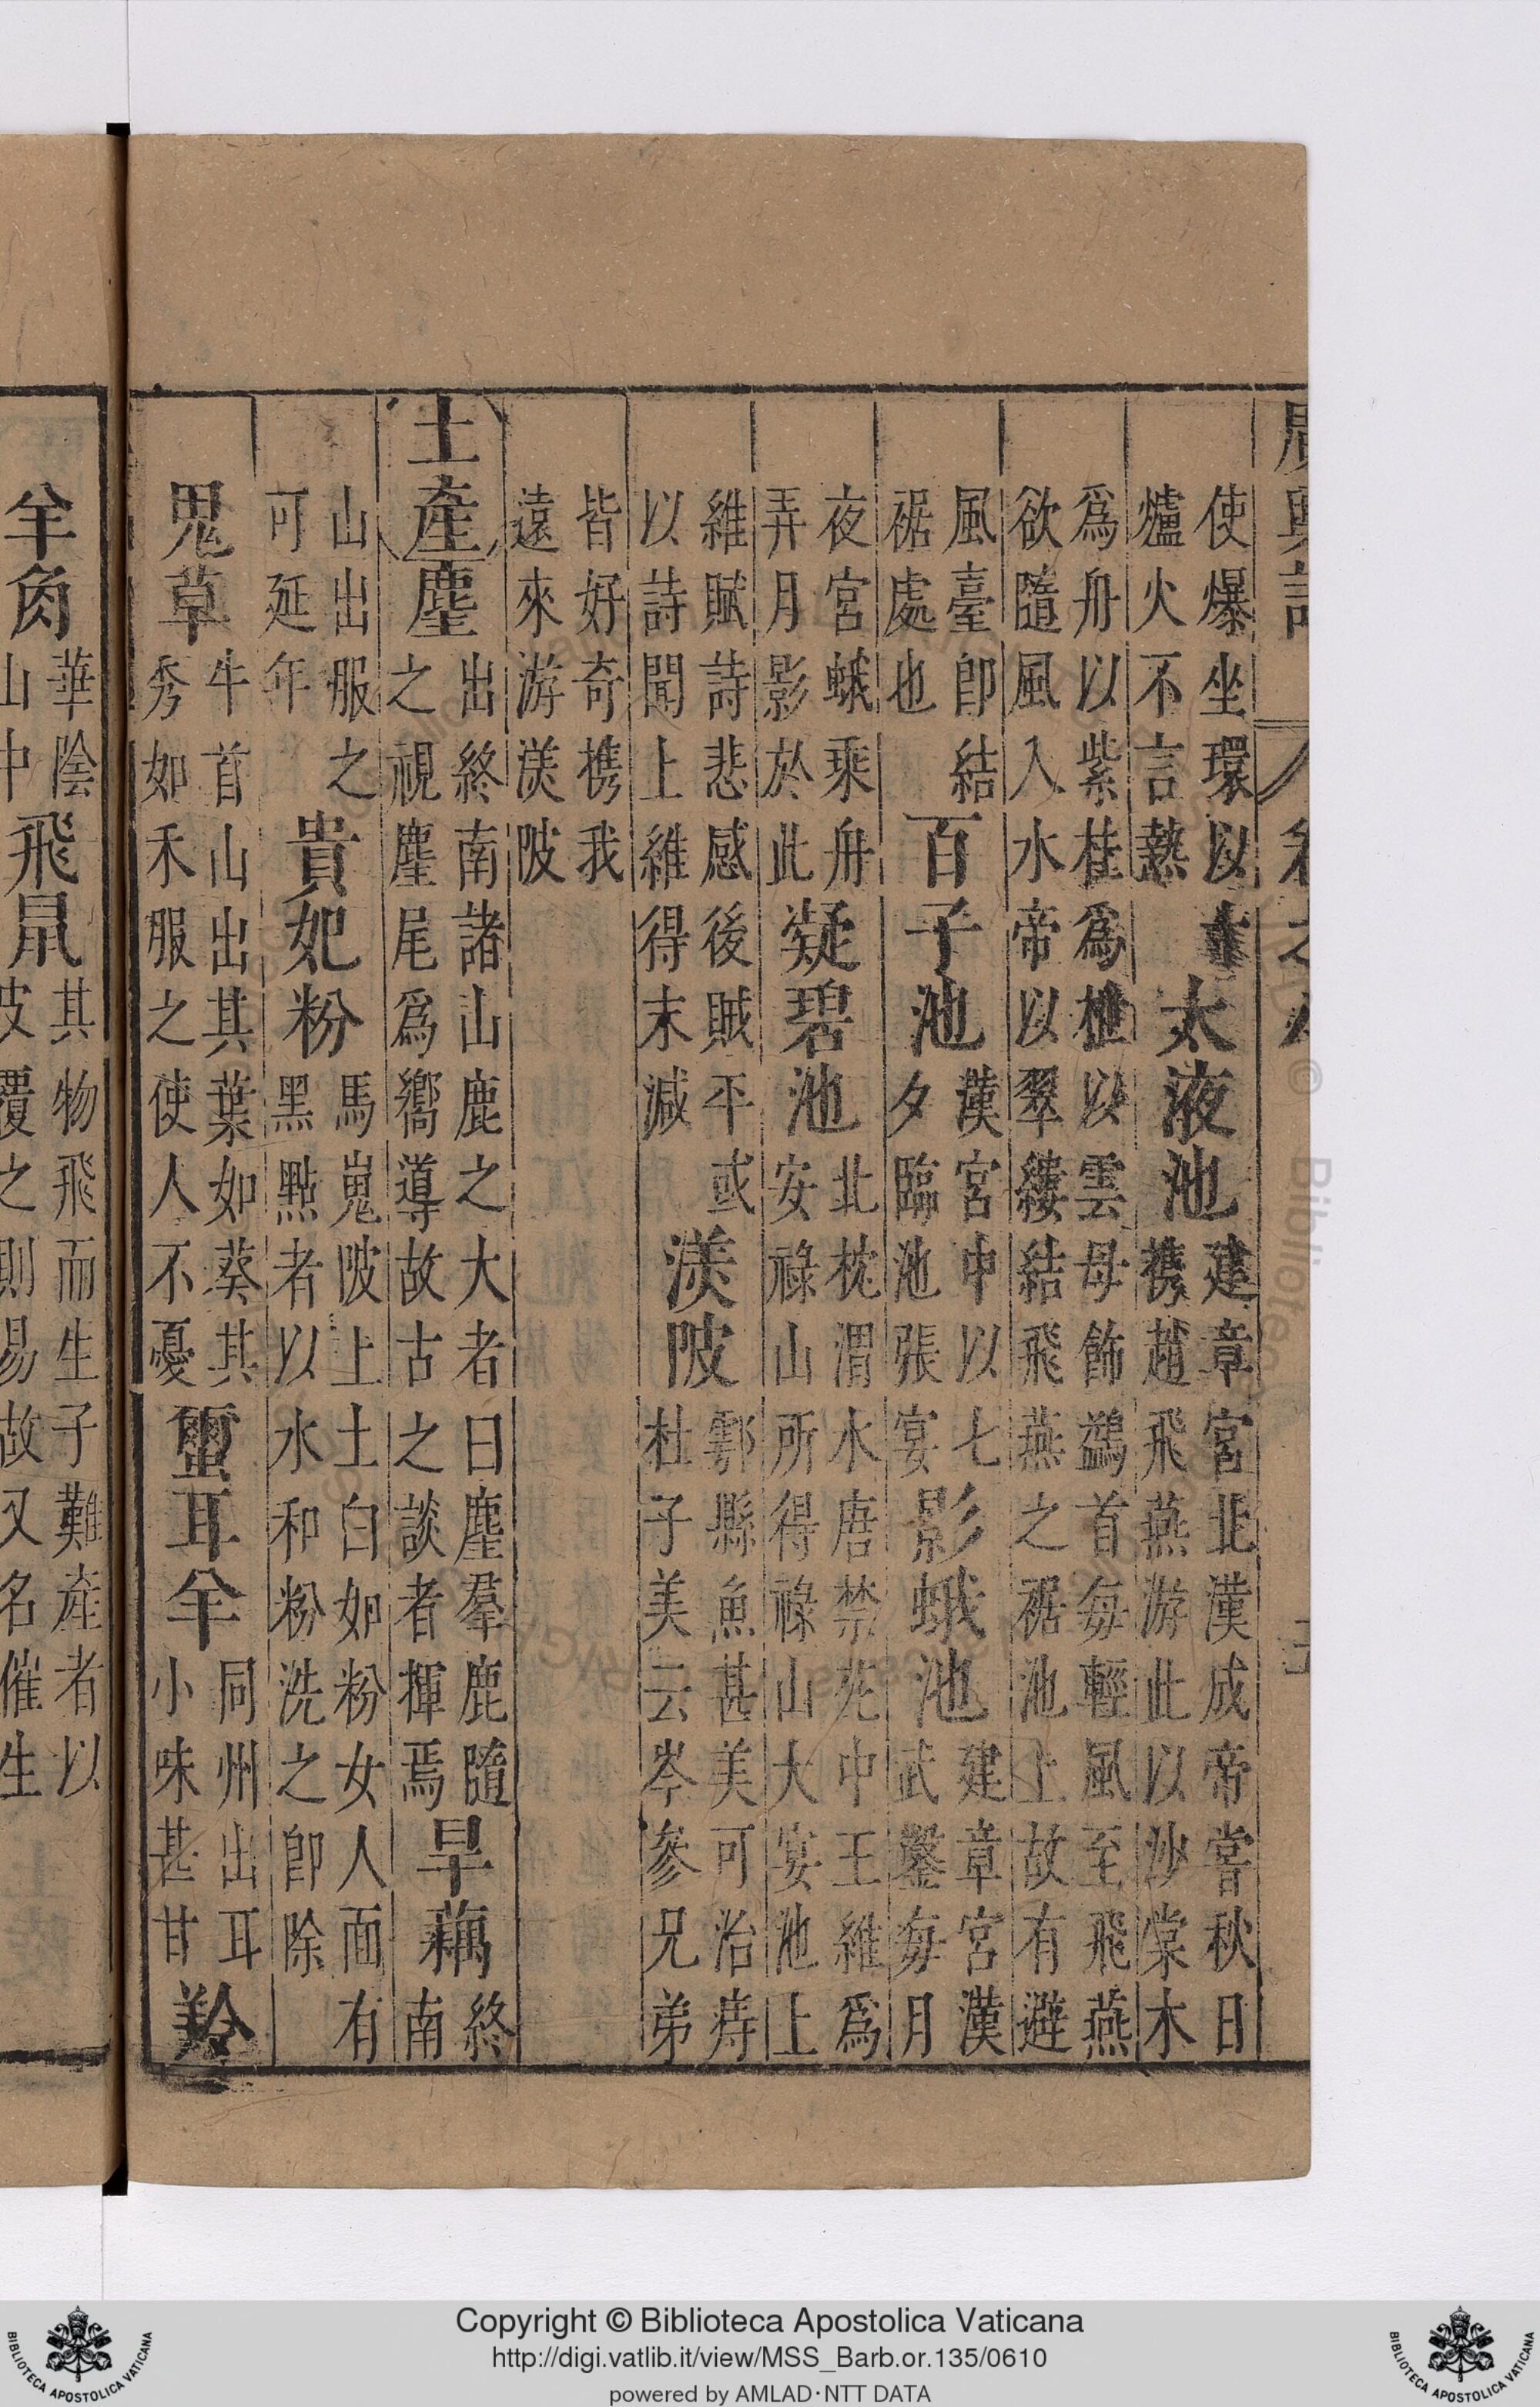 使爆坐環以
爐火不言熱
太液池
建章宮北漢成帝嘗秋日
攜趙飛燕游此以沙棠木
爲舟以紫桂爲柂以雲母飾鷁首每輕風至飛燕
欲隨風入水帝以翠縷結飛燕之裾池上故有避
風臺即結
裾處也
百子池
漢宮中以七
夕臨池張宴
影蛾池
建章宮漢
武鑿每月
夜宮蛾乘舟
弄月影於此
凝碧池
北枕渭水唐禁苑中王維爲
安祿山所得祿山大宴池上
維賦詩悲感後賊平或
以詩聞上維得末減
渼陂
鄠縣魚甚美可治痔
杜子美云岑參兄弟
皆好奇攜我
遠來游渼陂
土產
麈
出終南諸山鹿之大者曰麈羣鹿隨
之視麈尾爲嚮導故古之談者揮焉
旱藕
終
南
山出服之
可延年
貴妃粉
馬嵬陂上土白如粉女人面有
黑點者以水和粉洗之即除
鬼草
牛首山出其葉如葵其
秀如禾服之使人不憂
耳羊
同州出耳
小味甚甘
羚
羊角
華陰
山中
飛鼠
其物飛而生子難產者以
皮覆之則易故又名催生
Copyright © Biblioteca Apostolica Vaticana
http://digi.vatlib.it/view/MSS_Barb.or.135/0610
powered by AMLAD·NTT DATA
BIBLIOTECA APOSTOLICA VATICANA
BIBLIOTECA APOSTOLICA VATICANA